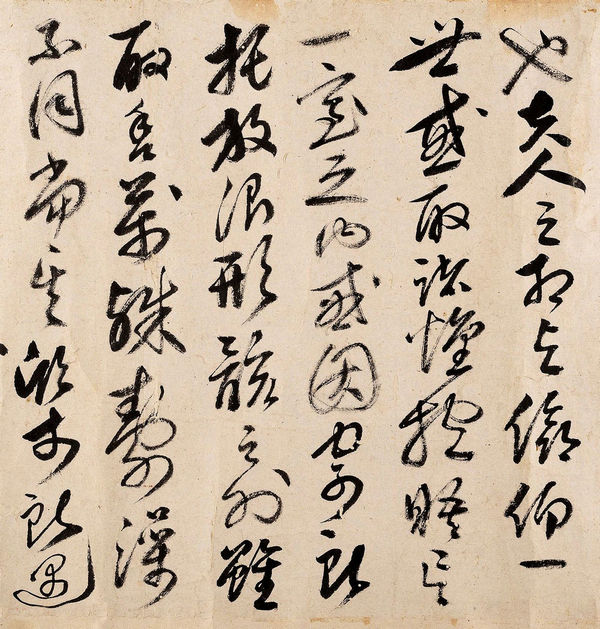 也夫人之相与俯仰一
世或取諸懷抱晤言
一室之内或因寄所
托放浪形骸之外雖
取舍萬殊静躁
不同當其欣於所遇